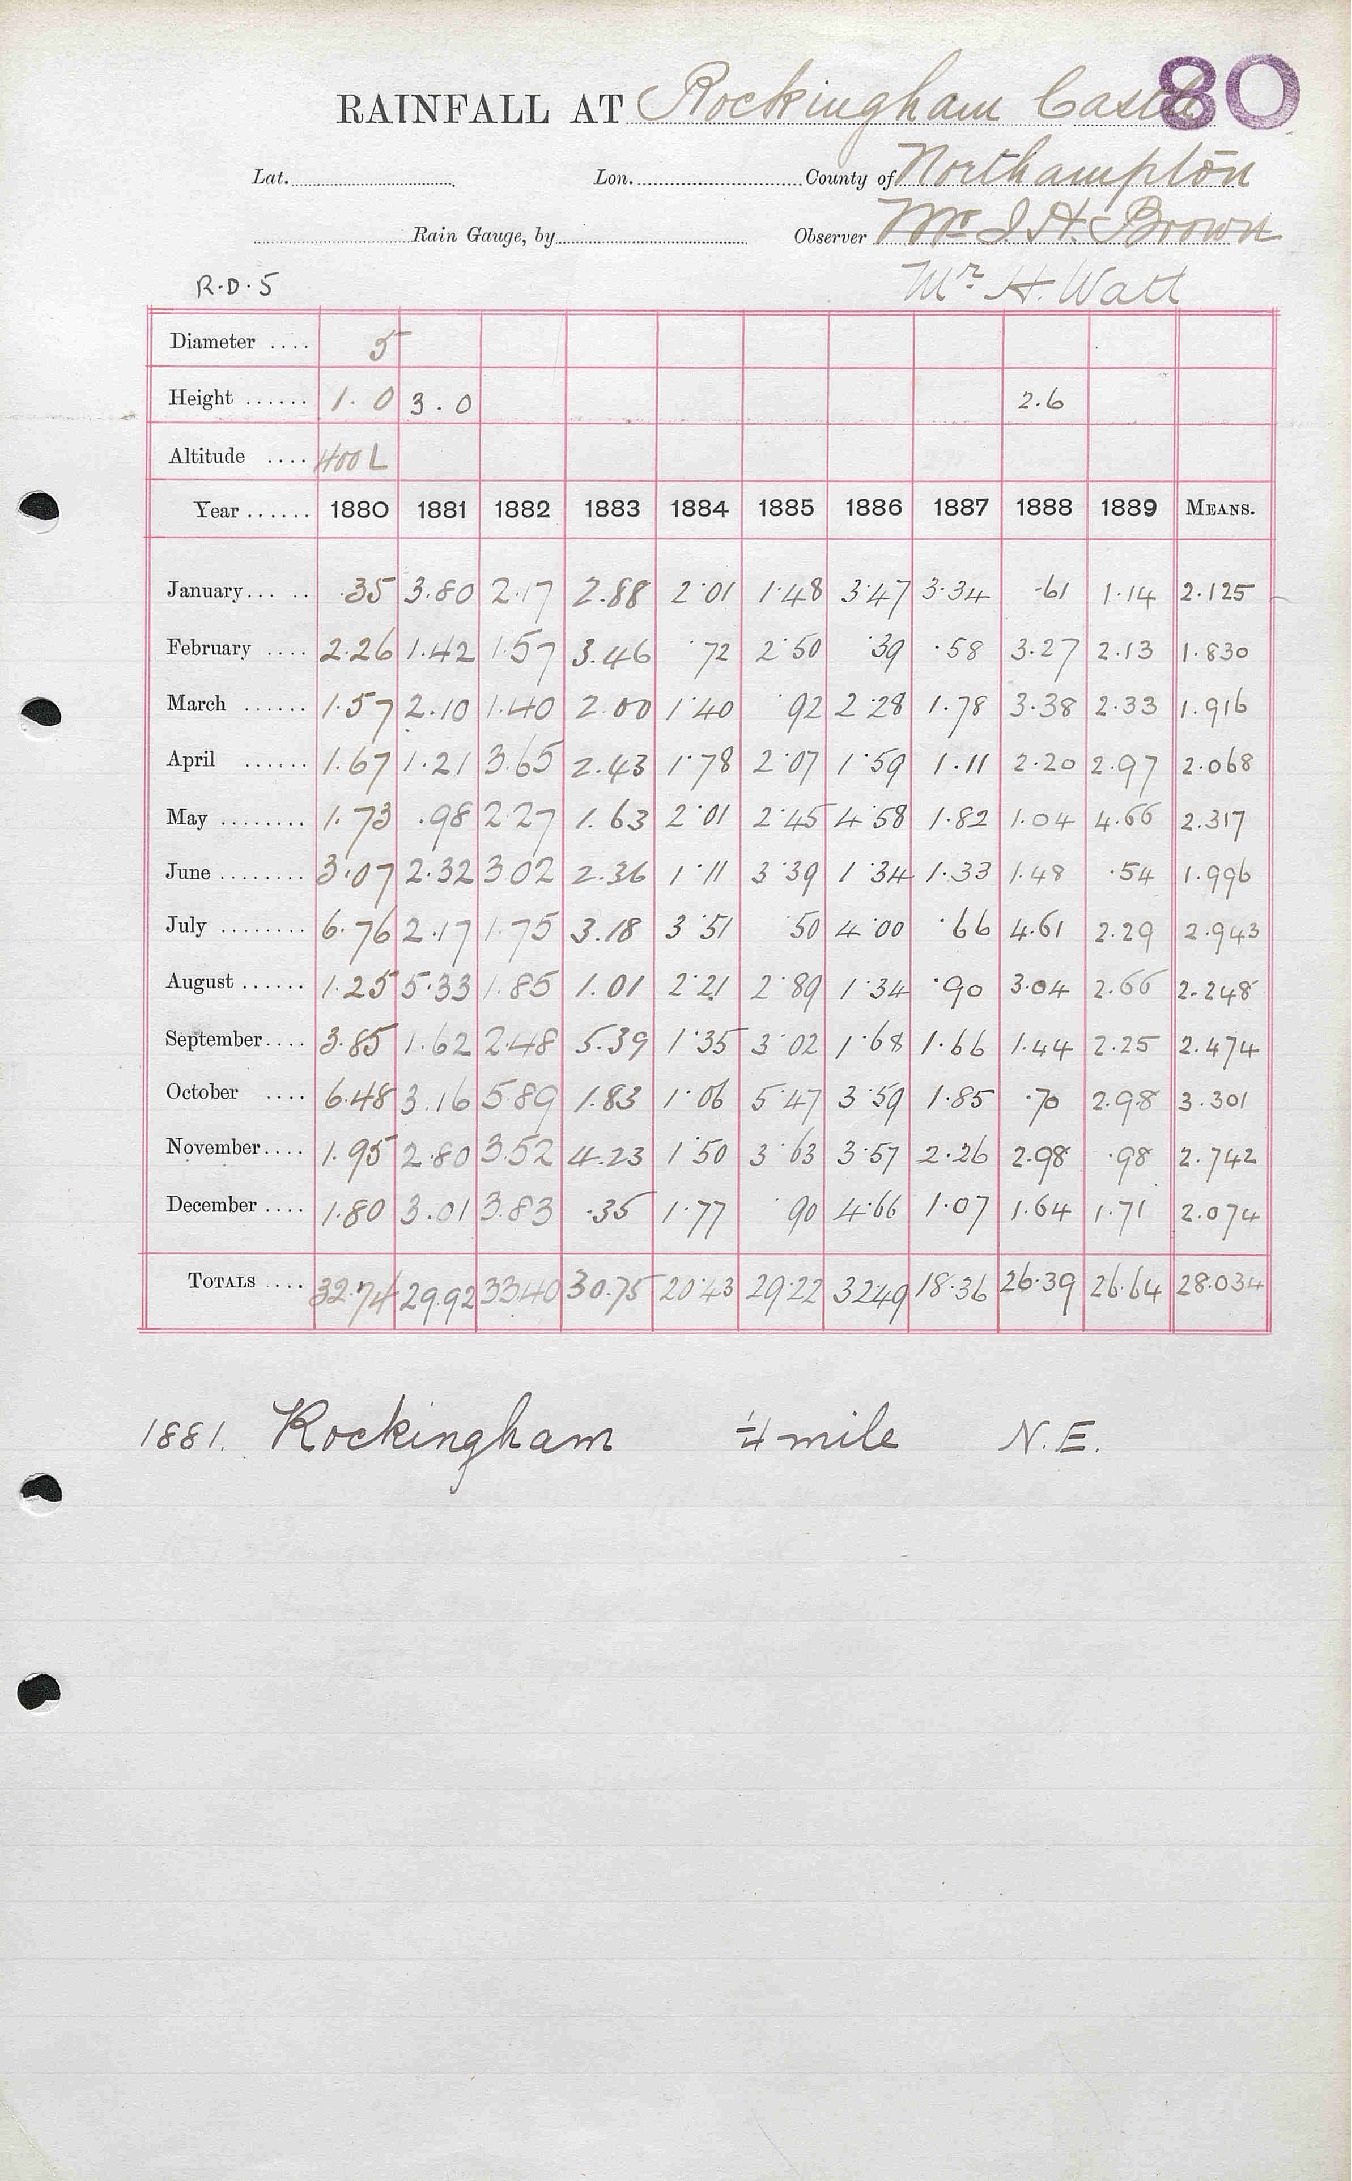 80
RAINFALL AT Rockingham Castle
Lat. Lon. County of Northampton
Rain Gauge, by Observer Mr J. H. Brown
R.D.5 Mr H. Watt
Diameter .... 5
Height ...... 1.0 3.0 2.6
Altitude .... 400 L
Year ...... 1880 1881 1882 1883 1884 1885 1886 1887 1888 1889 MEANS.
January... .. .35 3.80 2.17 2.88 2.01 1.48 3.47 3.34 .61 1.14 2.125
February .... 2.26 1.42 1.57 3.46 .72 2.50 .39 .58 3.27 2.13 1.830
March ...... 1.57 2.10 1.40 2.00 1.40 .92 2.28 1.78 3.38 2.33 1.916
April ...... 1.67 1.21 3.65 2.43 1.78 2.07 1.59 1.11 2.20 2.97 2.068
May ........ 1.73 .98 2.27 1.63 2.01 2.45 4.58 1.82 1.04 4.66 2.317
June ........ 3.07 2.32 3.02 2.36 1.11 3.39 1.34 1.33 1.48 .54 1.996
July ........ 6.76 2.17 1.75 3.18 3.51 .50 4.00 .66 4.61 2.29 2.943
August ...... 1.25 5.33 1.85 1.01 2.21 2.89 1.34 .90 3.04 2.66 2.248
September.... 3.85 1.62 2.48 5.39 1.35 3.02 1.68 1.66 1.44 2.25 2.474
October .... 6.48 3.16 5.89 1.83 1.06 5.47 3.59 1.85 .70 2.98 3.301
November.... 1.95 2.80 3.52 4.23 1.50 3.63 3.57 2.26 2.98 .98 2.742
December .... 1.80 3.01 3.83 .35 1.77 .90 4.66 1.07 1.64 1.71 2.074
TOTALS .... 32.74 29.92 33.40 30.75 20.43 29.22 32.49 18.36 26.39 26.64 28.034
1881. Rockingham ¼ mile N.E.